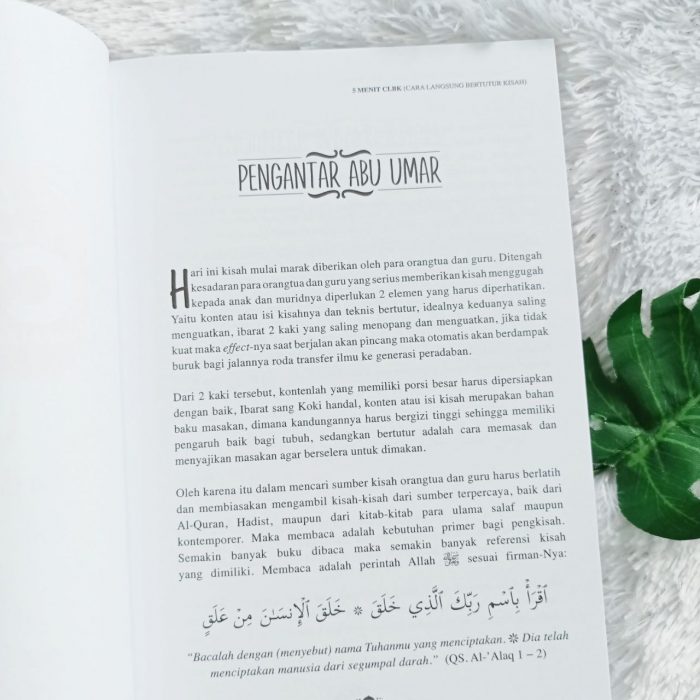 5 MENIT CLBK (CARA LANGSUNG BERTUTUR KISAH)
PENGANTAR ABU UMAR
Hari ini kisah mulai marak diberikan oleh para orangtua dan guru. Ditengah
kesadaran para orangtua dan guru yang serius memberikan kisah menggugah
kepada anak dan muridnya diperlukan 2 elemen yang harus diperhatikan.
Yaitu konten atau isi kisahnya dan teknis bertutur, idealnya keduanya saling
menguatkan, ibarat 2 kaki yang saling menopang dan menguatkan, jika tidak
kuat maka effect-nya saat berjalan akan pincang maka otomatis akan berdampak
buruk bagi jalannya roda transfer ilmu ke generasi peradaban.
Dari 2 kaki tersebut, kontenlah yang memiliki porsi besar harus dipersiapkan
dengan baik, Ibarat sang Koki handal, konten atau isi kisah merupakan bahan
baku masakan, dimana kandungannya harus bergizi tinggi sehingga memiliki
pengaruh baik bagi tubuh, sedangkan bertutur adalah cara memasak dan
menyajikan masakan agar berselera untuk dimakan.
Oleh karena itu dalam mencari sumber kisah orangtua dan guru harus berlatih
dan membiasakan mengambil kisah-kisah dari sumber terpercaya, baik dari
Al-Quran, Hadist, maupun dari kitab-kitab para ulama salaf maupun
kontemporer. Maka membaca adalah kebutuhan primer bagi pengkisah.
Semakin banyak buku dibaca maka semakin banyak referensi kisah
yang dimiliki. Membaca adalah perintah Allah sesuai firman-Nya:
ٱقْرَأْ بِٱسْمِ رَبِّكَ ٱلَّذِي خَلَقَ ۞ خَلَقَ ٱلْإِنسَٰنَ مِنْ عَلَقٍ
“Bacalah dengan (menyebut) nama Tuhanmu yang menciptakan. ۞ Dia telah
menciptakan manusia dari segumpal darah.” (QS. Al-’Alaq 1 – 2)